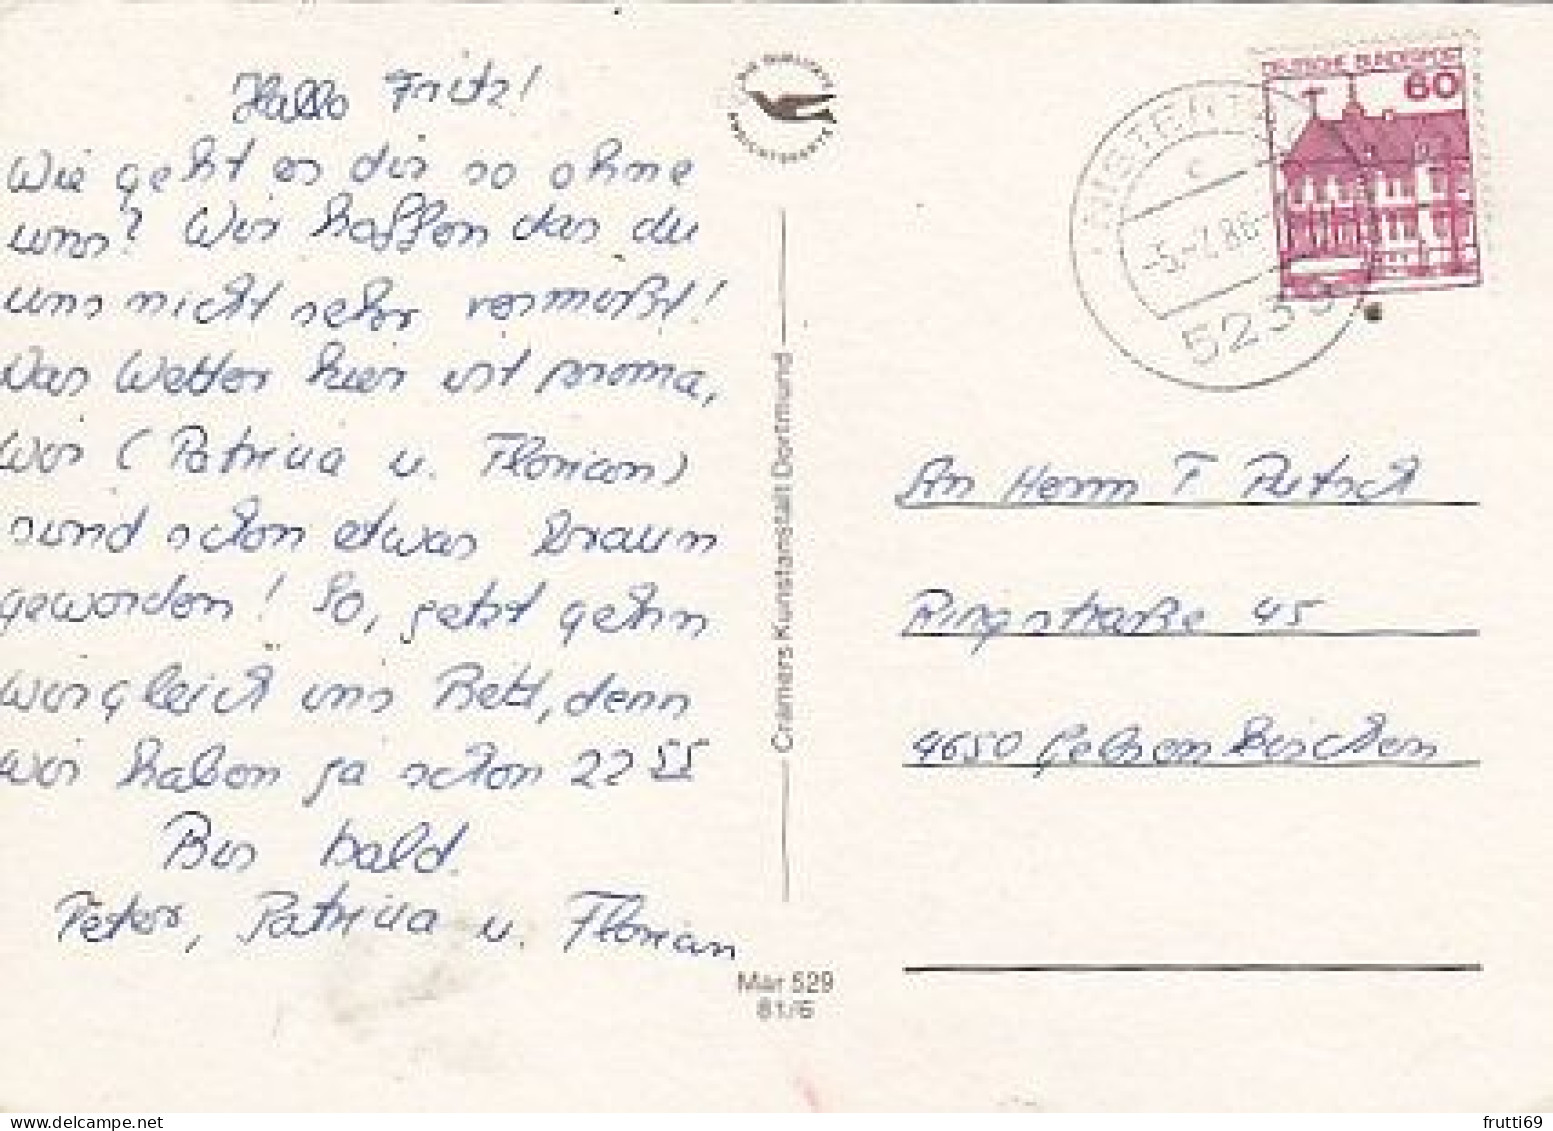 Hallo Fritz!
Wie geht es dir so ohne
uns? Wir hoffen das du
uns nicht sehr vermißt!
Das Wetter hier ist prima,
wir (Patricia u. Florian)
sind schon etwas braun
geworden! So, jetzt gehn
wir gleich ins Bett, denn
wir haben ja schon 22 55
Bis bald.
Peter, Patricia u. Florian
Cramers Kunstanstalt Dortmund
Mar 529
81/6
DEUTSCHE BUNDESPOST
60
5230
An Herrn F
Ringstraße 45
4650 Gelsenkirchen
frutti69